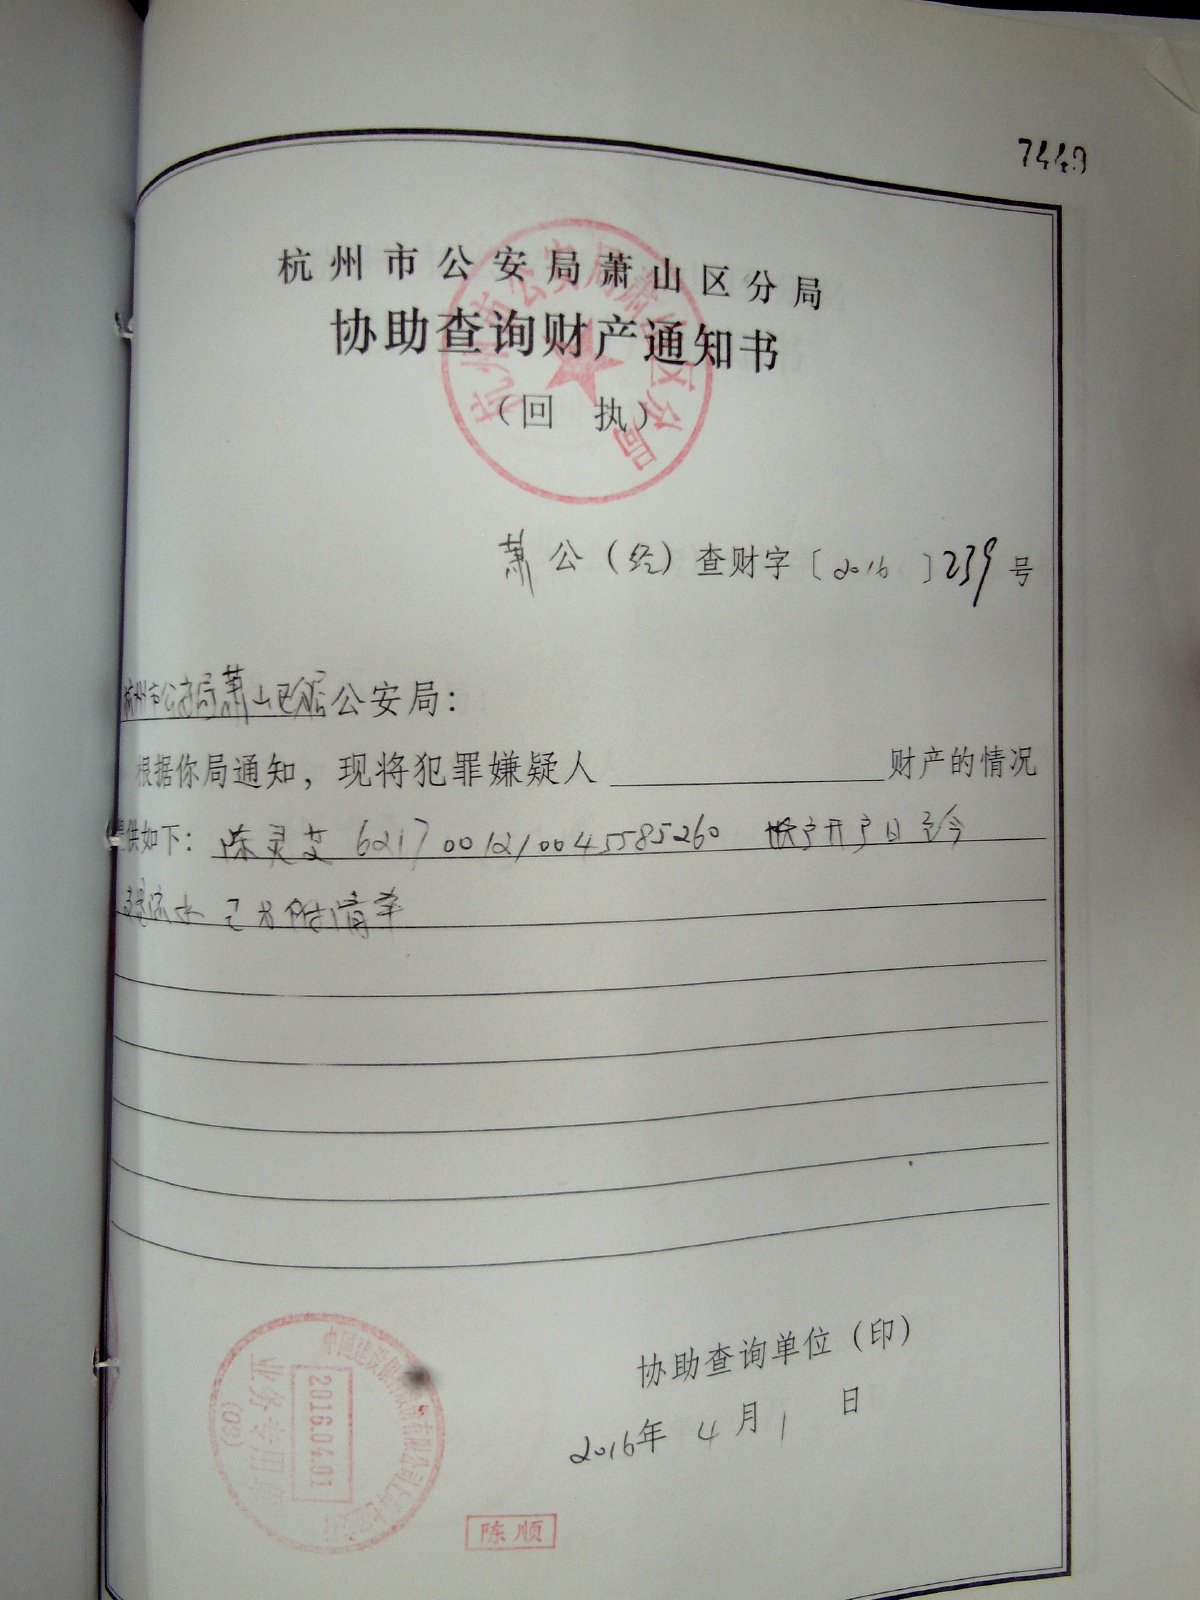 7443
杭州市公安局萧山区分局
协助查询财产通知书
（回 执）
萧公（经）查财字〔2016〕239号
杭州市公安局萧山区分局公安局：
根据你局通知，现将犯罪嫌疑人 财产的情况
提供如下：陈灵芝 6217001210045585260 账户开户日至今
流水 已 附清单
协助查询单位（印）
2016年 4 月 1 日
杭州市公安局萧山区分局
中国建设银行股份有限公司上海
2016.04.01
业务专用章
(09)
陈顺